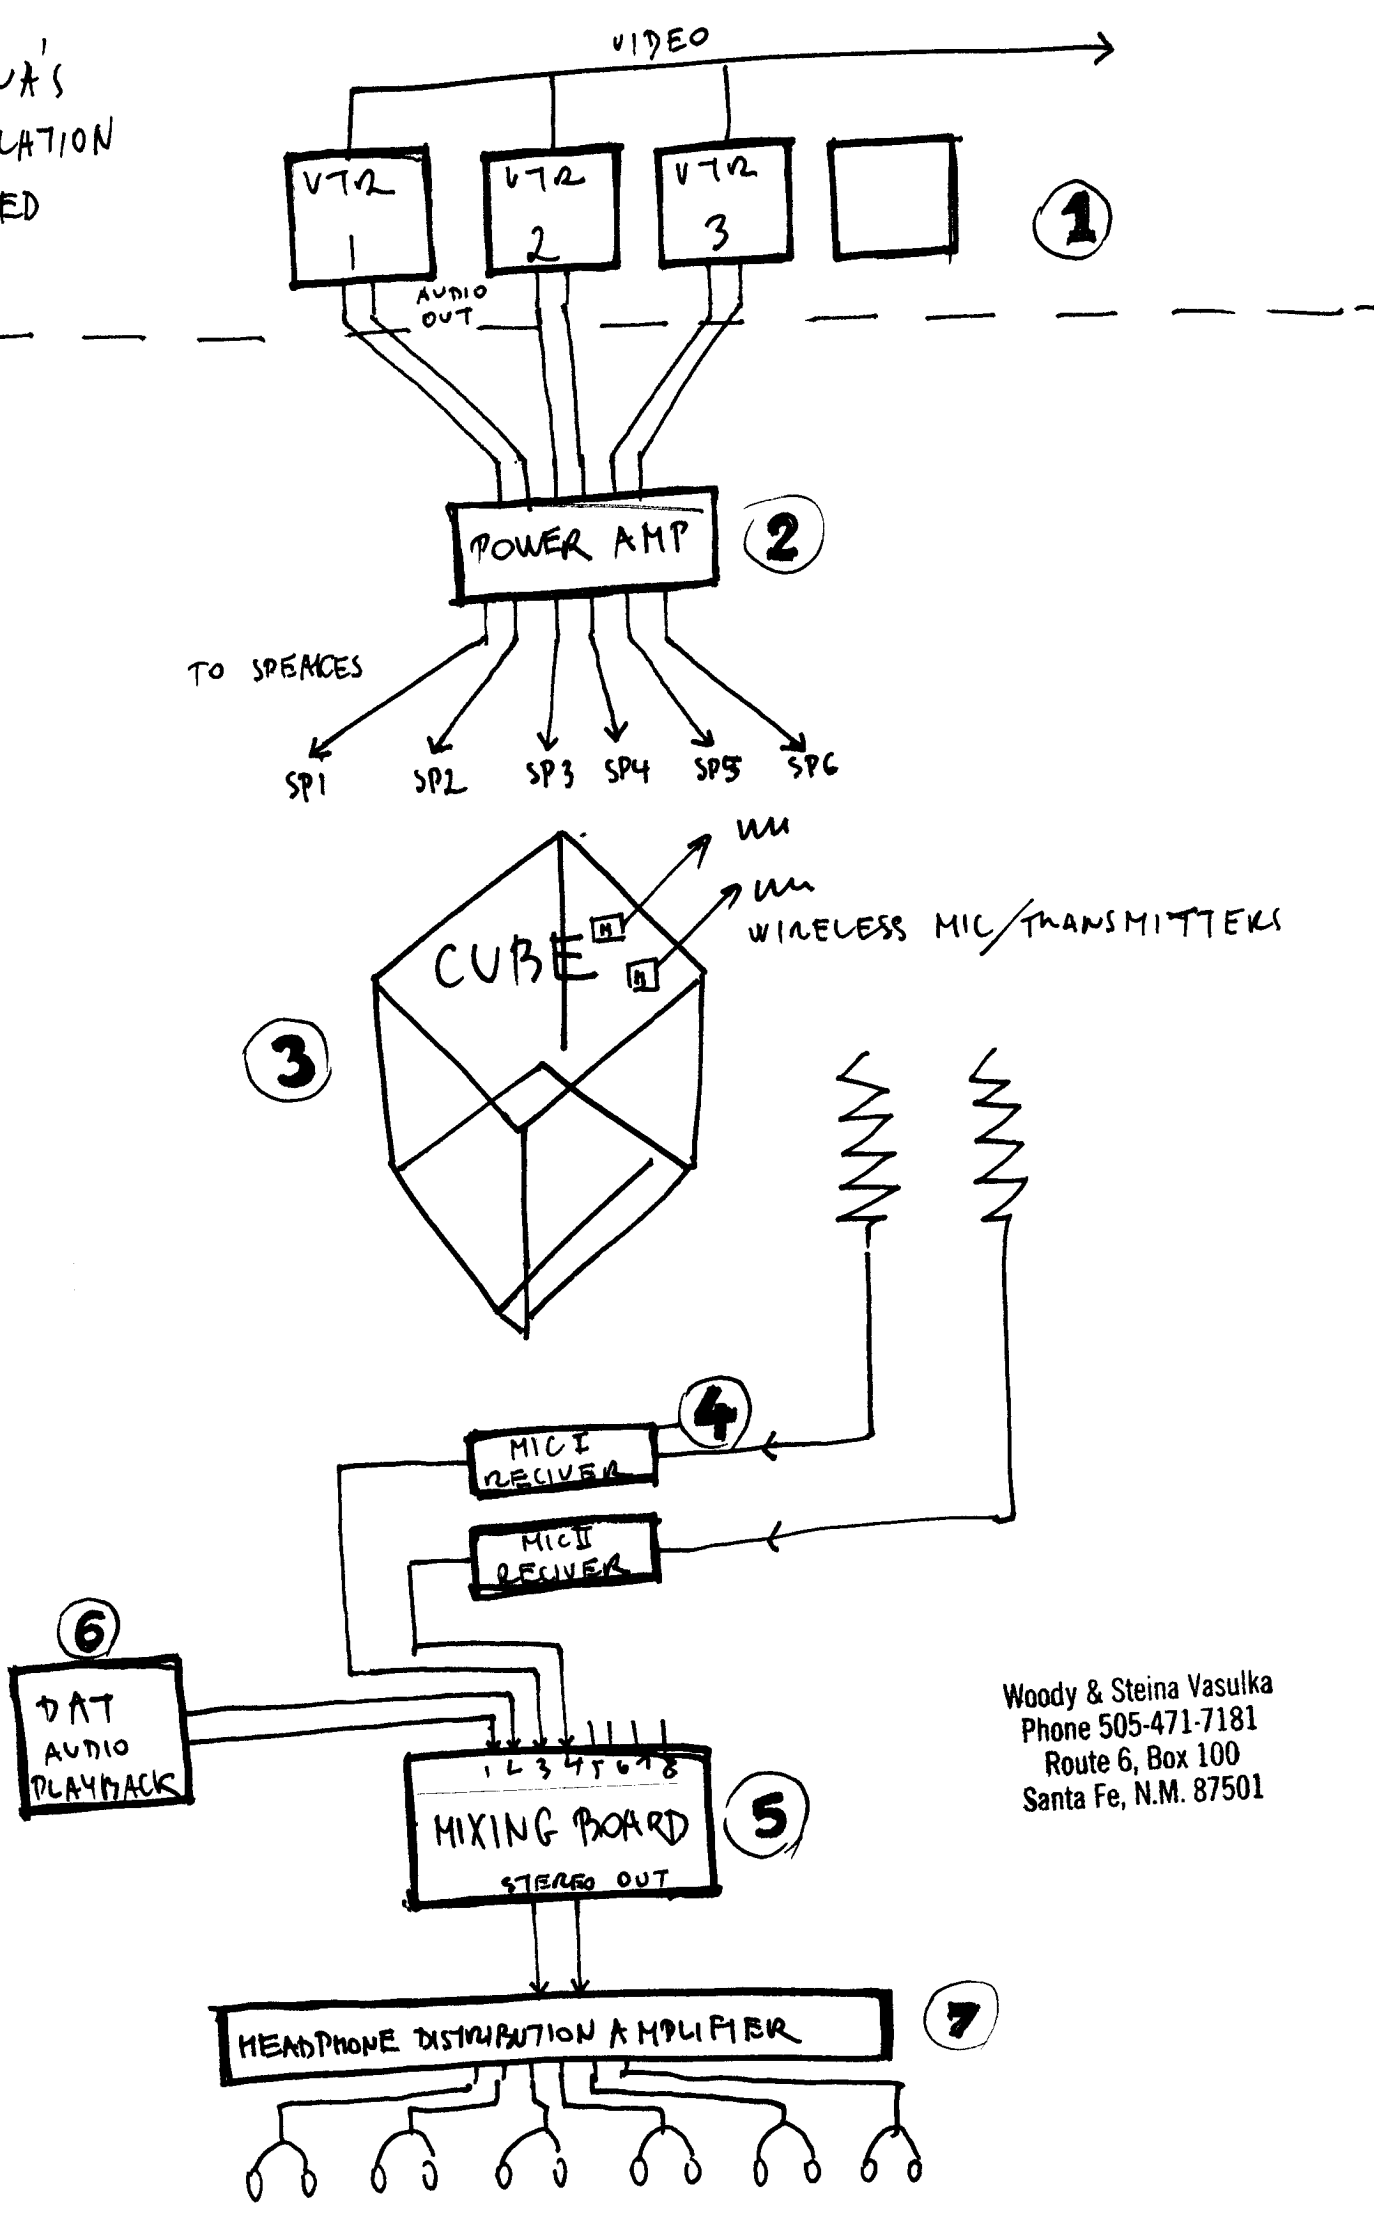 VIDEO
UA'S
LATION
ED
VTR
1
VTR
2
VTR
3
1
AUDIO
OUT
POWER AMP
2
TO SPEAKES
SP1
SP2
SP3
SP4
SP5
SP6
CUBE
M
M
WIRELESS MIC/TRANSMITTERS
3
4
MIC I
RECIVER
MIC II
RECIVER
6
DAT
AUDIO
PLAYBACK
1 2 3 4 5 6 7 8
MIXING BOARD
STEREO OUT
5
Woody & Steina Vasulka
Phone 505-471-7181
Route 6, Box 100
Santa Fe, N.M. 87501
HEADPHONE DISTRIBUTION AMPLIFIER
7